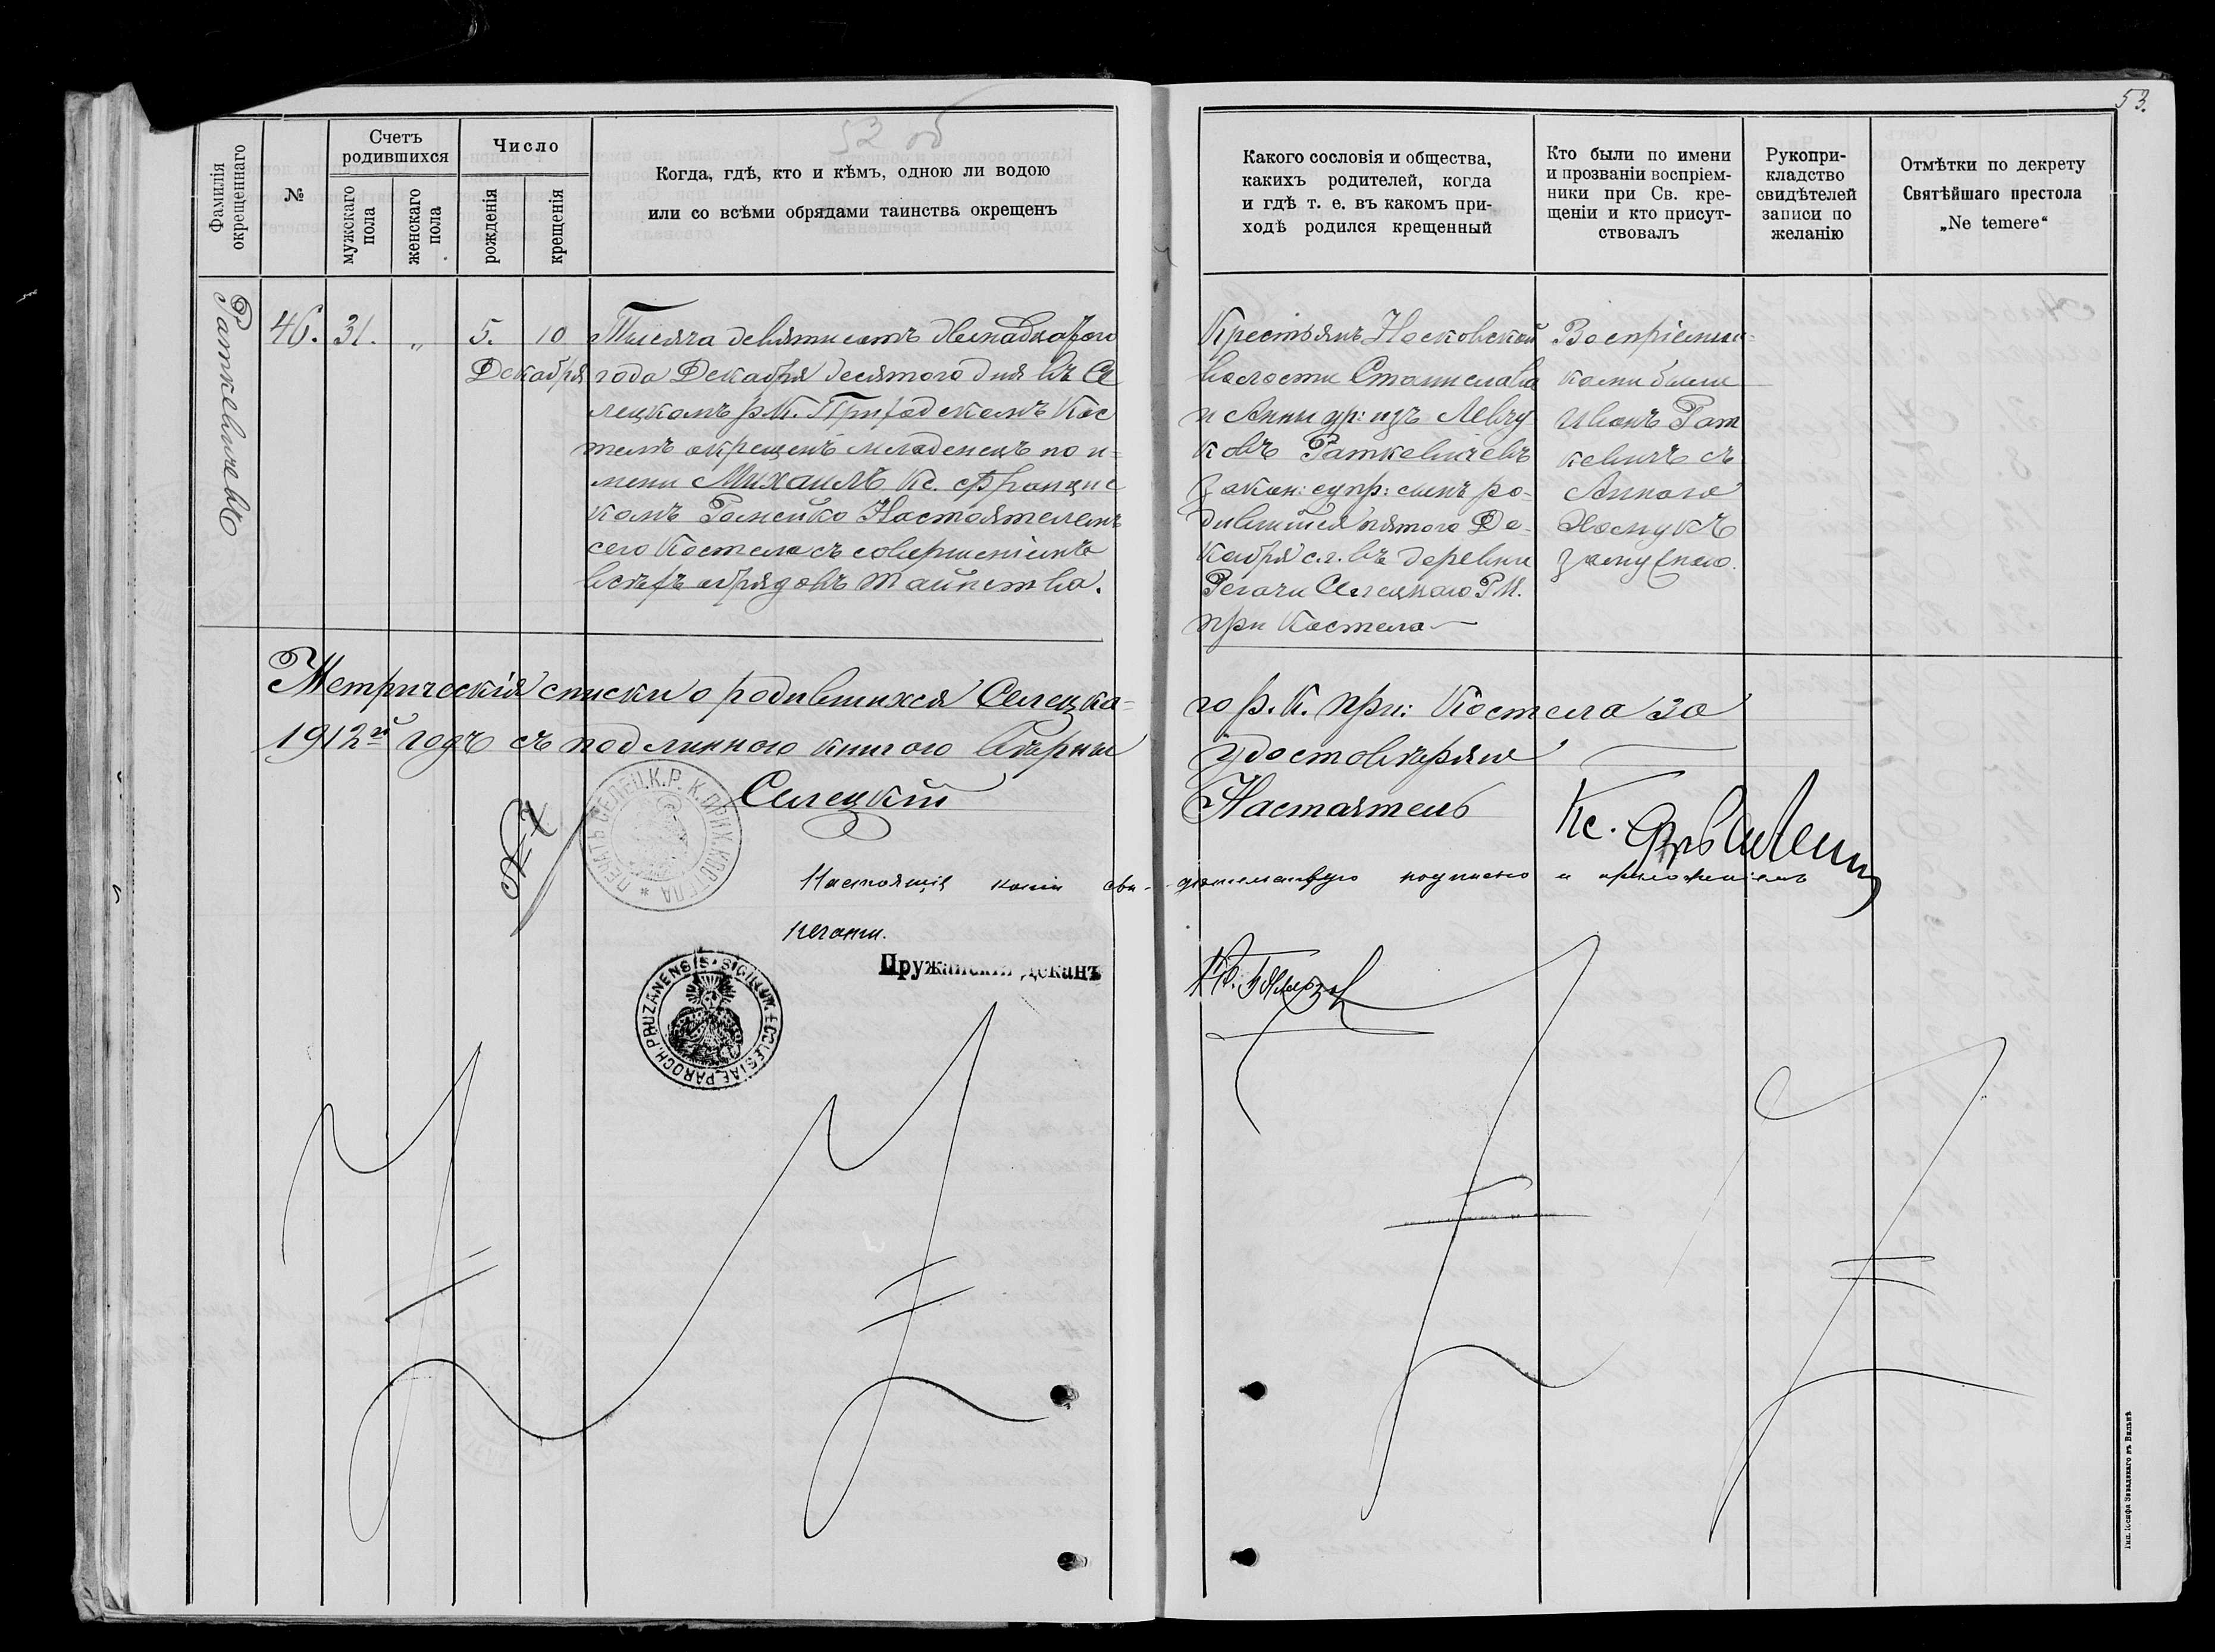 53.
52 об
Фамилія окрещеннаго
№
Счетъ родившихся
мужскаго пола
женскаго пола
Число
рожденія
крещенія
Когда, гдѣ, кто и кѣмъ, одною ли водою
или со всѣми обрядами таинства окрещенъ
Какого сословія и общества,
какихъ родителей, когда
и гдѣ т. е. въ какомъ при-
ходѣ родился крещенный
Кто были по имени
и прозваніи воспріем-
ники при Св. кре-
щеніи и кто присут-
ствовалъ
Рукопри-
кладство
свидѣтелей
записи по
желанію
Отмѣтки по декрету
Святѣйшаго престола
„Ne temere“
Раткевичъ
46. 31. „ 5. 10
Декабря
Тысяча девятисотъ двѣнадцатого
года Декабря десятого дня въ Се
лецкомъ р.К. Приходскомъ Кос
телѣ окрещенъ младенецъ по и=
мени Михаилъ Кс. Францис
комъ Ромейко Настоятелемъ
сего Костела съ совершеніемъ
всѣхъ обрядовъ таинства.
Крестьянъ Носковской
волости Станислава
и Анны ур: изъ Левчу
ковъ Раткевичевъ
закон: супр: сынъ ро-
дившійся пятого Де-
кабря с.г. въ деревни
Регачи Селецкаго Р.К.
при Костела
Воспріемни=
ками были
Иванъ Рат
кевичъ съ
Анною
замужнею.
Метрическія списки о родившихся Селецка=
го р.К. при: Костела за
1912й годъ съ подлинною книгою вѣрны
удостовѣряю
Селецкій
Настоятель
Кс.
ПЕЧАТЬ СЕЛЕЦ.К.Р.К.ПРИХ.КОСТЕЛА
Настоящія копіи сви- дѣтельствую подписью и приложеніемъ
печати.
Пружанскій деканъ
SIGILLUM ECCLESIAE PAROCH. PRUZANENSIS
Тип. Іосифа Завадзкаго въ Вильнѣ